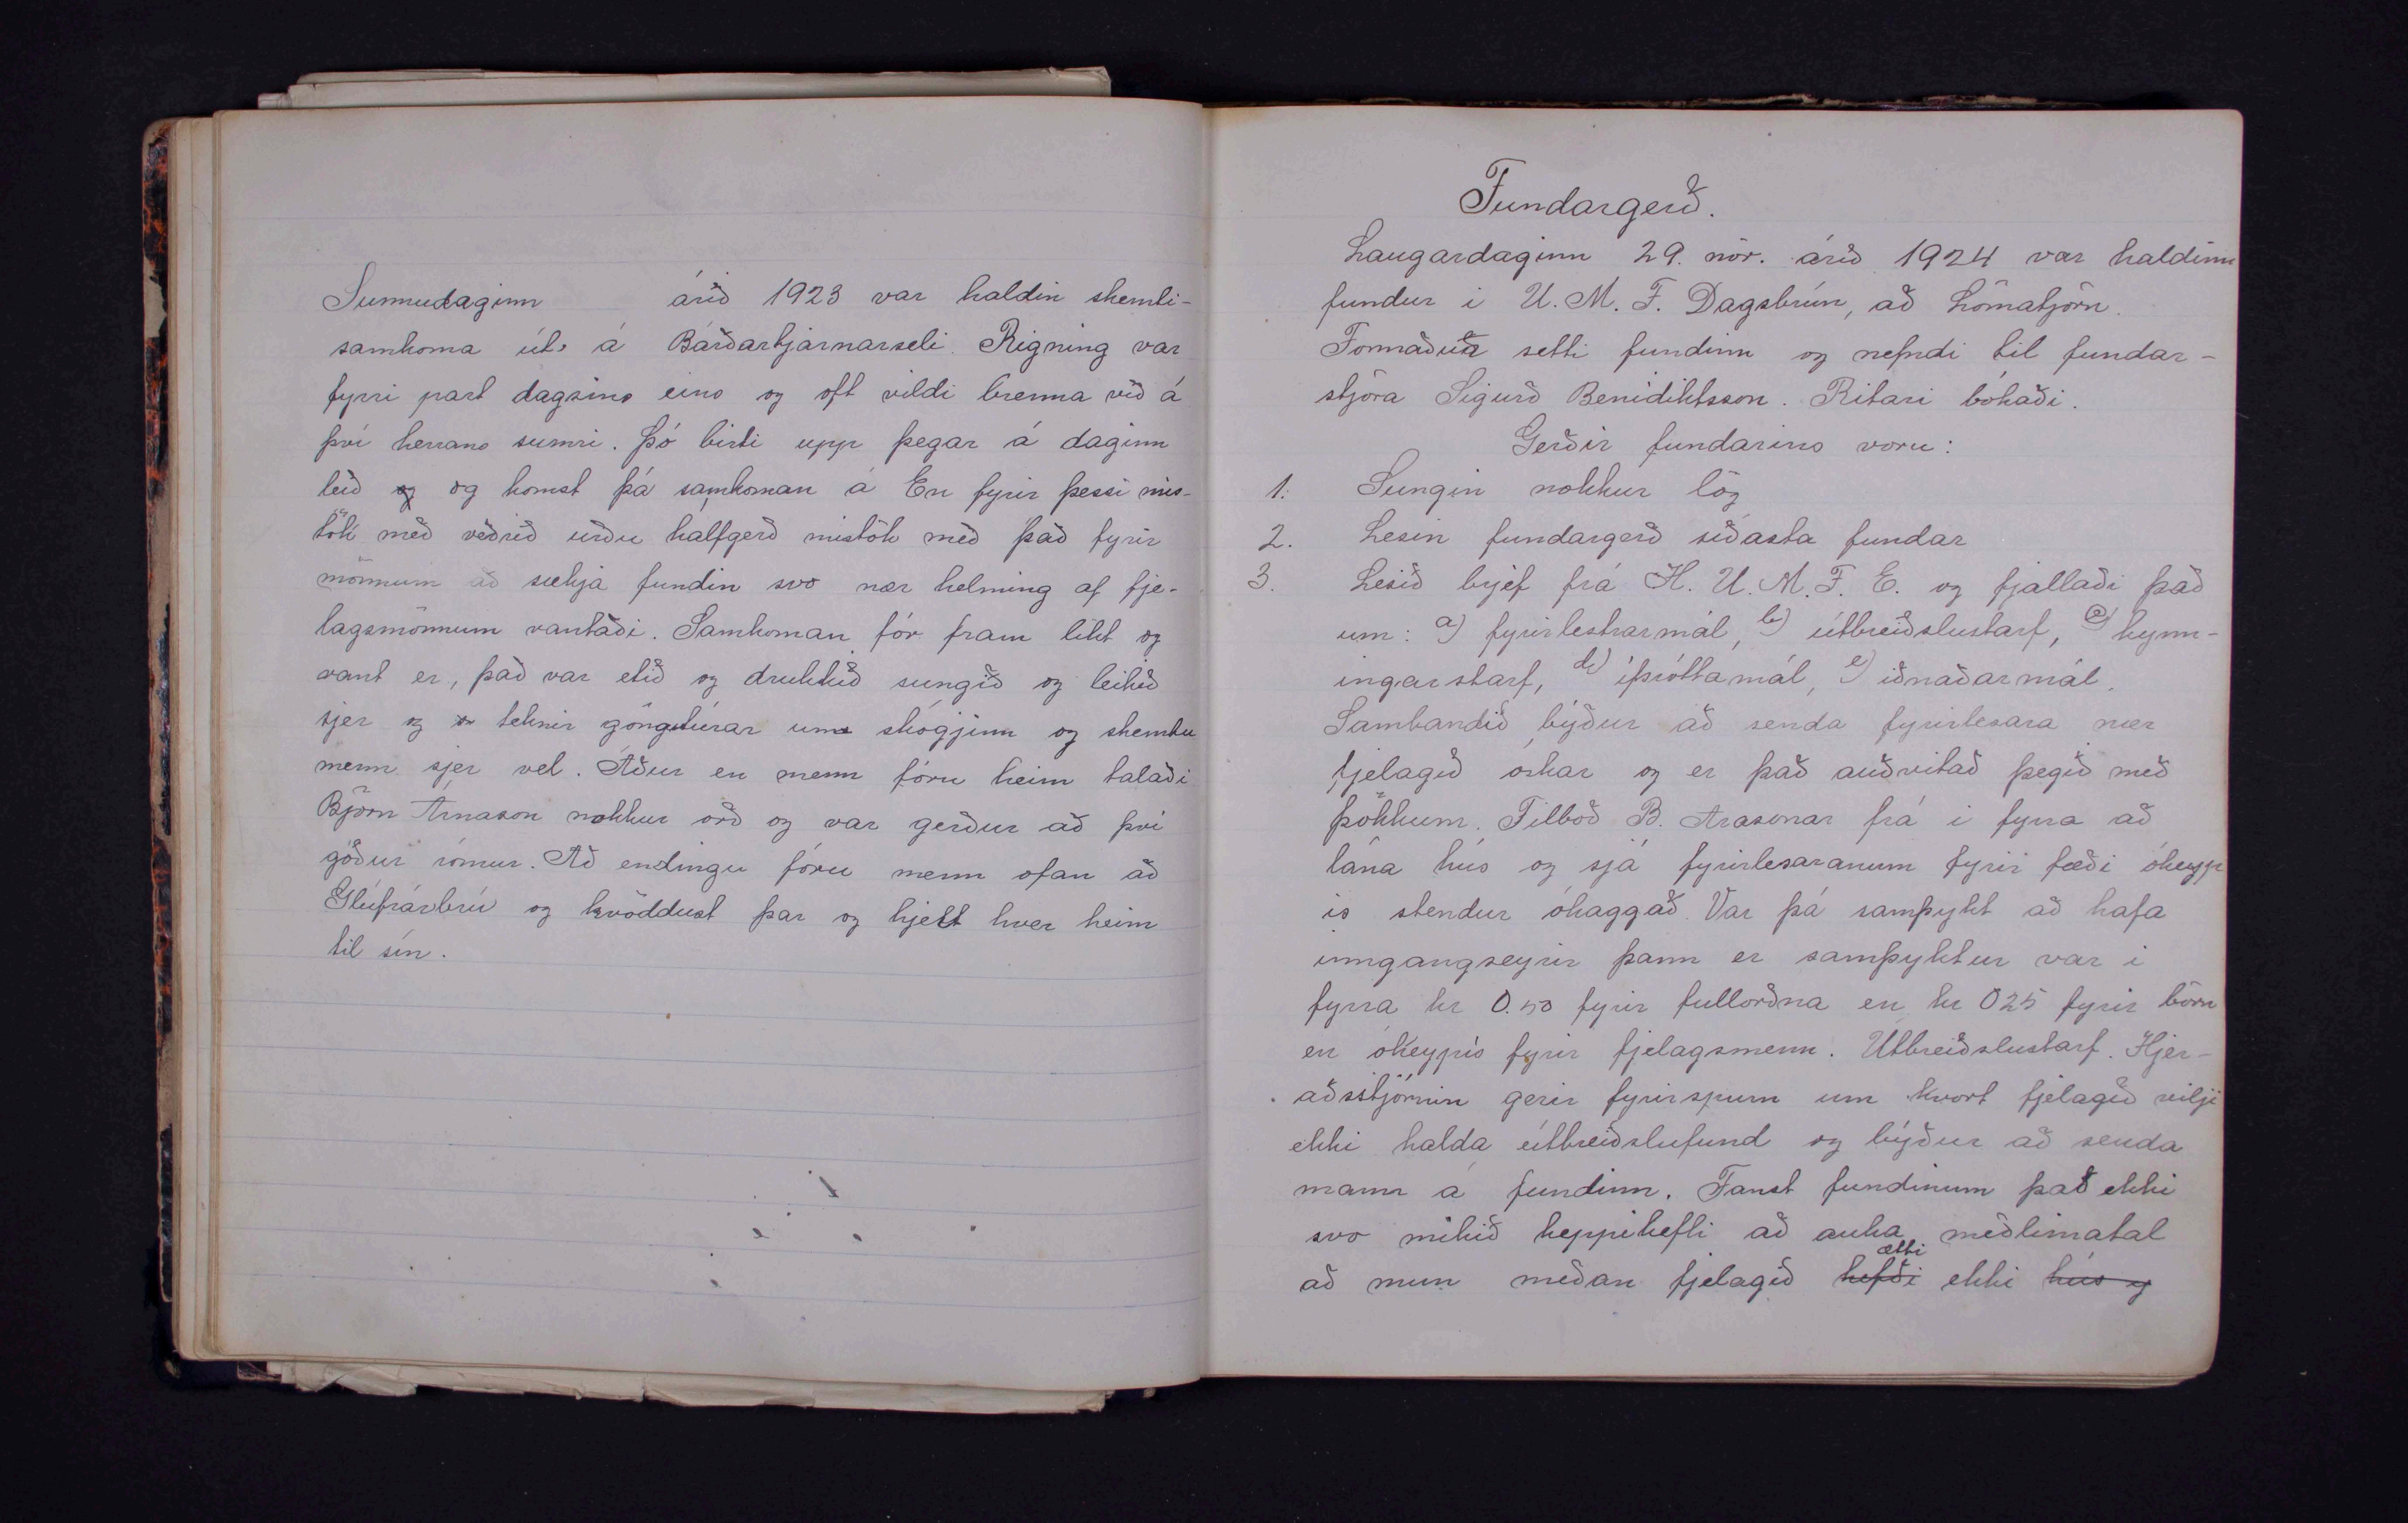 Sunnudaginn árið 1923 var haldin skemti-
samkoma út á Bárðartjarnarseli. Rigning var
fyrri part dagsins eins og oft vildi brenna við á
því herrans sumri. Þó birti upp þegar á daginn
leið og og komst þá samkoman á En fyrir þessi mis-
tök með veðrið urðu hálfgerð mistök með það fyrir
mönnum að sækja fundin svo nær helming af fje-
lagsmönnum vantaði. Samkoman fór fram líkt og
vant er, það var etið og drukkið sungið og leikið
sjer og teknir göngutúrar um skógjinn og skemtu
menn sjer vel. Áður en menn fóru heim talaði
Björn Árnason nokkur orð og var gerður að því
góður rómur. Að endingu fóru menn ofan að
Glúfrárbrú og kvöddust þar og hjelt hver heim
til sín.
Fundargerð.
Laugardaginn 29. nóv. árið 1924 var haldinn
fundur í U. M. F. Dagsbrún, að Lómatjörn.
Formaður setti fundinn og nefndi til fundar-
stjóra Sigurð Benidiktsson. Ritari bókaði.
Gerðir fundarins voru:
1. Sungin nokkur lög
2. Lesin fundargerð síðasta fundar
3. Lesið brjef frá H. U. M. F. E. og fjallaði það
um: a) fyrirlestrarmál, b) útbreiðslustarf, c) kynn-
ingarstarf, d) íþróttamál, e) iðnaðarmál.
Sambandið býður að senda fyrirlesara nær
fjelagið óskar og er það auðvitað þegið með
þökkum. Tilboð B. Arasonar frá í fyrra að
lána hús og sjá fyrirlesaranum fyrir fæði ókeyp
is stendur óhaggað. Var þá samþykt að hafa
inngangseyrir þann er samþyktur var í
fyrra kr 0.50 fyrir fullorðna en kr 025 fyrir börn
en ókeypis fyrir fjelagsmenn. Útbreiðslustarf. Hjer-
aðsstjórnin gerir fyrirspurn um hvort fjelagið vilji
ekki halda útbreiðslufund og býður að senda
mann á fundinn. Fanst fundinum það ekki
svo mikið keppikefli að auka meðlimatal
að mun meðan fjelagið hefði ætti ekki hús og